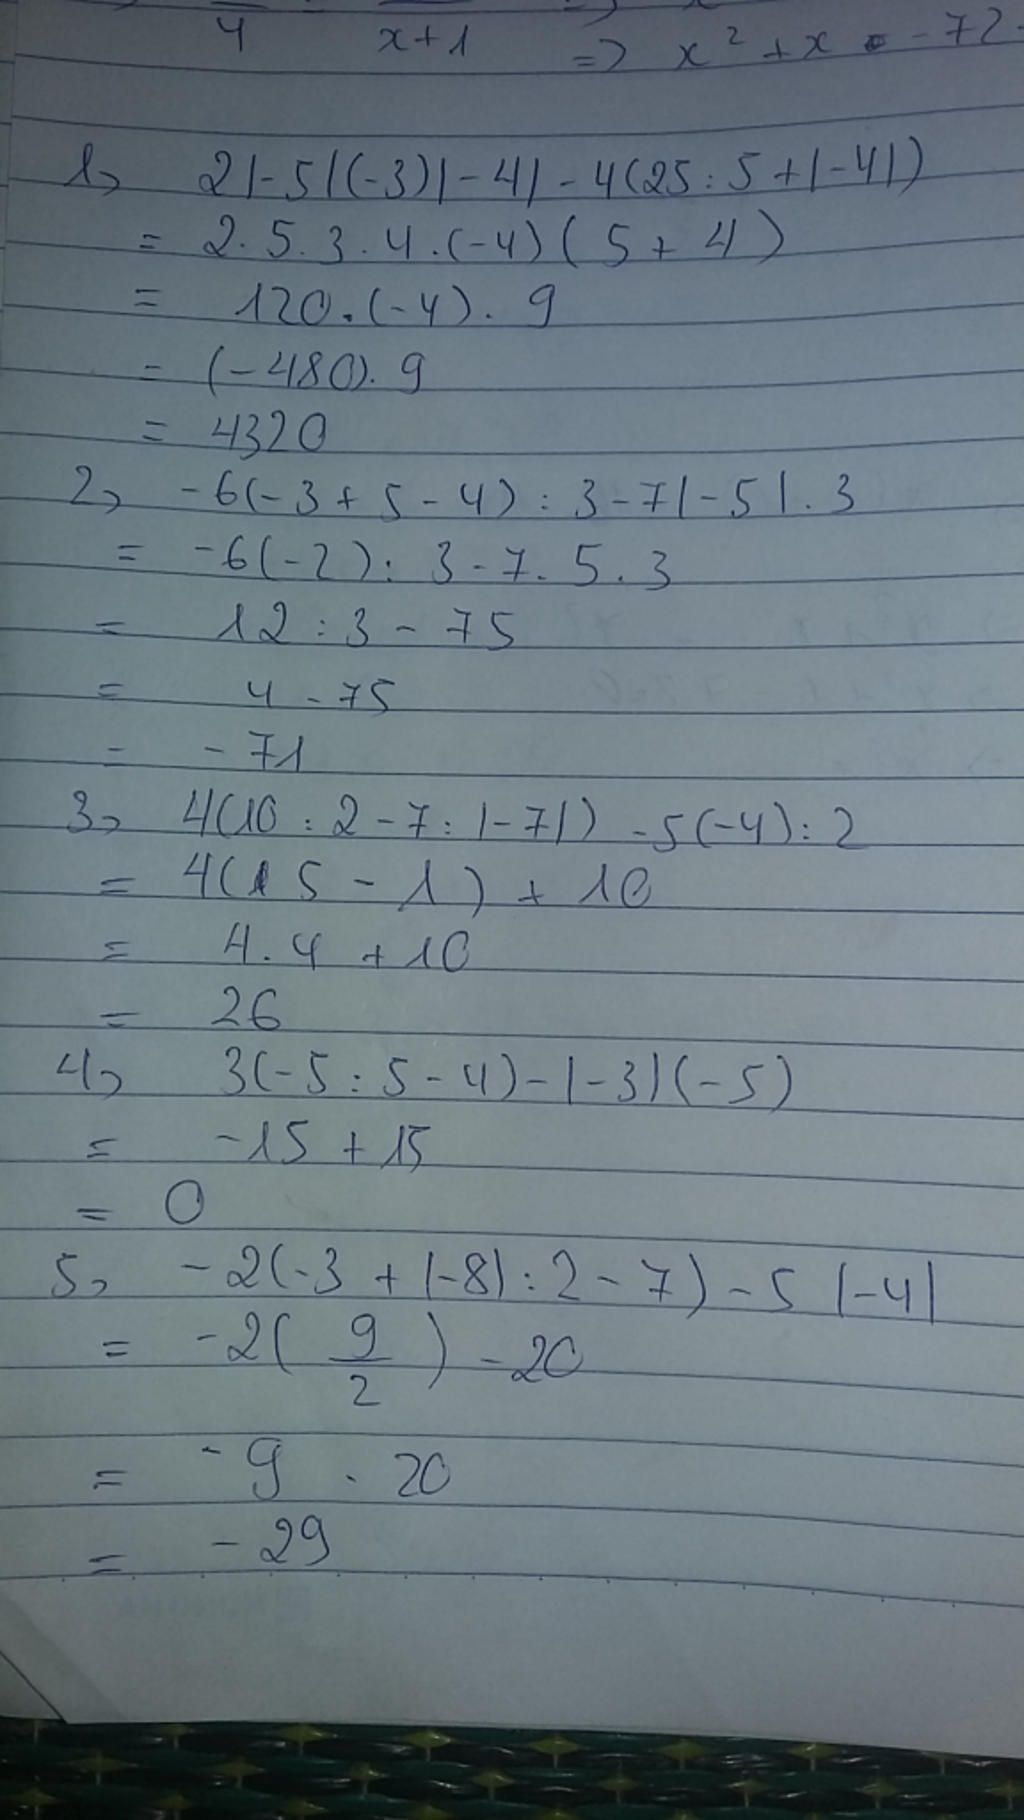 4 x+1 => x² + x = -72
1, 2|-5|(-3)|-4| - 4(25 : 5 + |-4|)
= 2.5.3.4.(-4)(5 + 4)
= 120.(-4).9
= (-480).9
= 4320
2, -6(-3 + 5 - 4) : 3 - 7|-5|.3
= -6(-2) : 3 - 7.5.3
= 12 : 3 - 75
= 4 - 75
= -71
3, 4(10 : 2 - 7 : |-7|) - 5(-4) : 2
= 4(5 - 1) + 10
= 4.4 + 10
= 26
4, 3(-5 : 5 - 4) - |-3|(-5)
= -15 + 15
= 0
5, -2(-3 + |-8| : 2 - 7) - 5|-4|
= -2(9/2) - 20
= -9 - 20
= -29